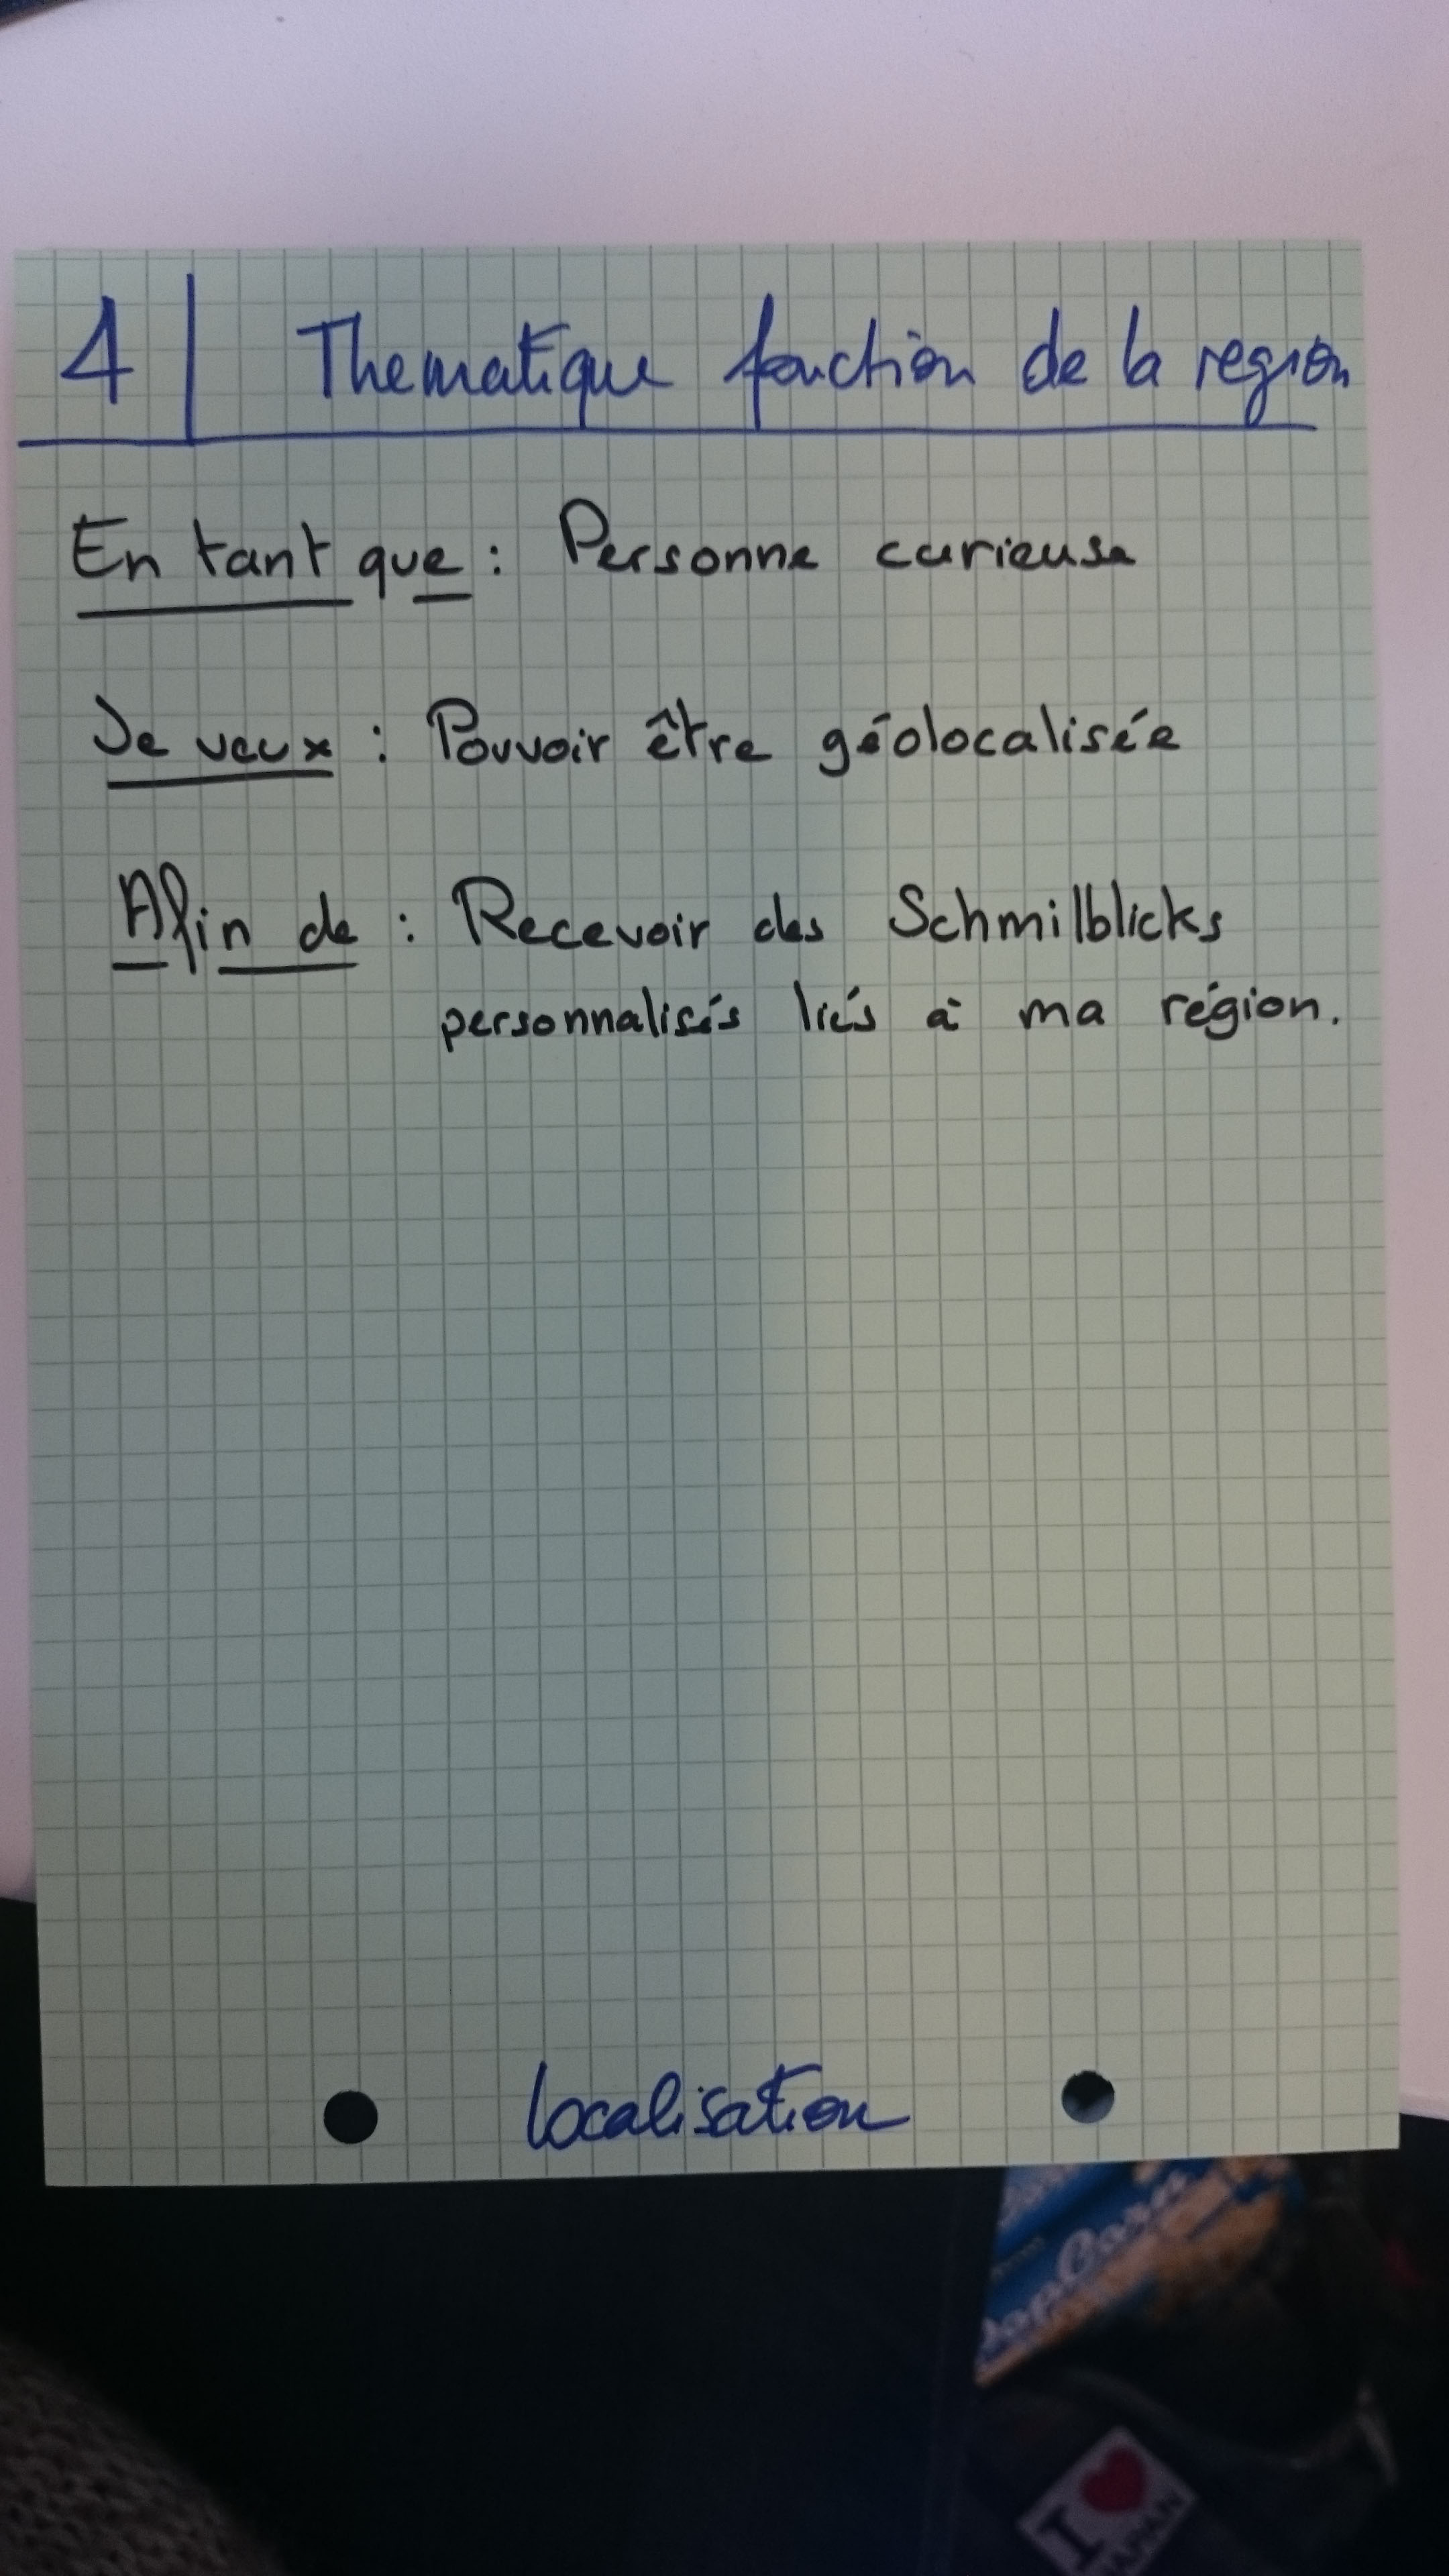 4 | Thematique fonction de la region
En tant que : Personne curieuse
Je veux : Pouvoir être géolocalisée
Afin de : Recevoir des Schmilblicks
personnalisés liés à ma région.
localisation
PopCorn
I ♥
JAPAN